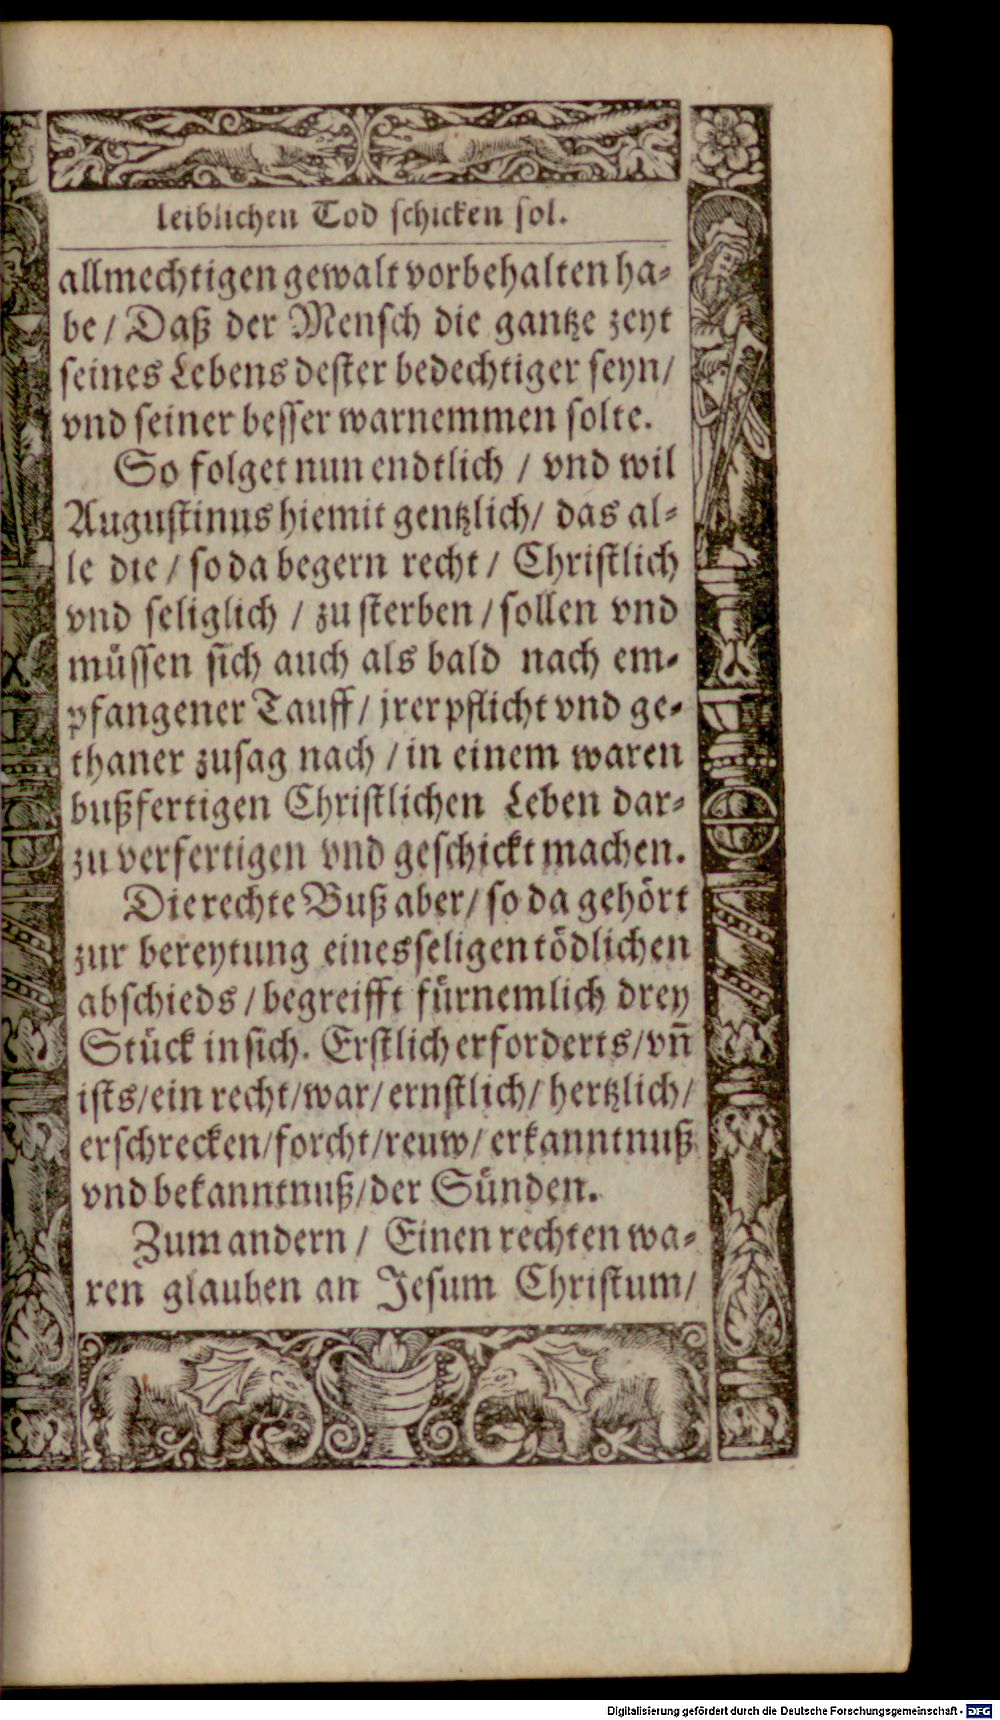 leiblichen Tod schicken sol.
allmechtigen gewalt vorbehalten ha-
be / Daß der Mensch die gantze zeyt
seines Lebens dester bedechtiger seyn/
vnd seiner besser warnemmen solte.
So folget nun endtlich / vnd wil
Augustinus hiemit gentzlich/ das al-
le die / so da begern recht / Christlich
vnd seliglich / zu sterben / sollen vnd
müssen sich auch als bald nach em-
pfangener Tauff / jrer pflicht vnd ge-
thaner zusag nach / in einem waren
bußfertigen Christlichen Leben dar-
zu verfertigen vnd geschickt machen.
Die rechte Buß aber / so da gehört
zur bereytung eines seligen tödlichen
abschieds / begreifft fürnemlich drey
Stück in sich. Erstlich erforderts/ vñ
ists/ ein recht/ war/ ernstlich/ hertzlich/
erschrecken/ forcht/ reuw/ erkanntnuß
vnd bekanntnuß/ der Sünden.
Zum andern / Einen rechten wa-
ren glauben an Jesum Christum/
Digitalisierung gefördert durch die Deutsche Forschungsgemeinschaft - DFG